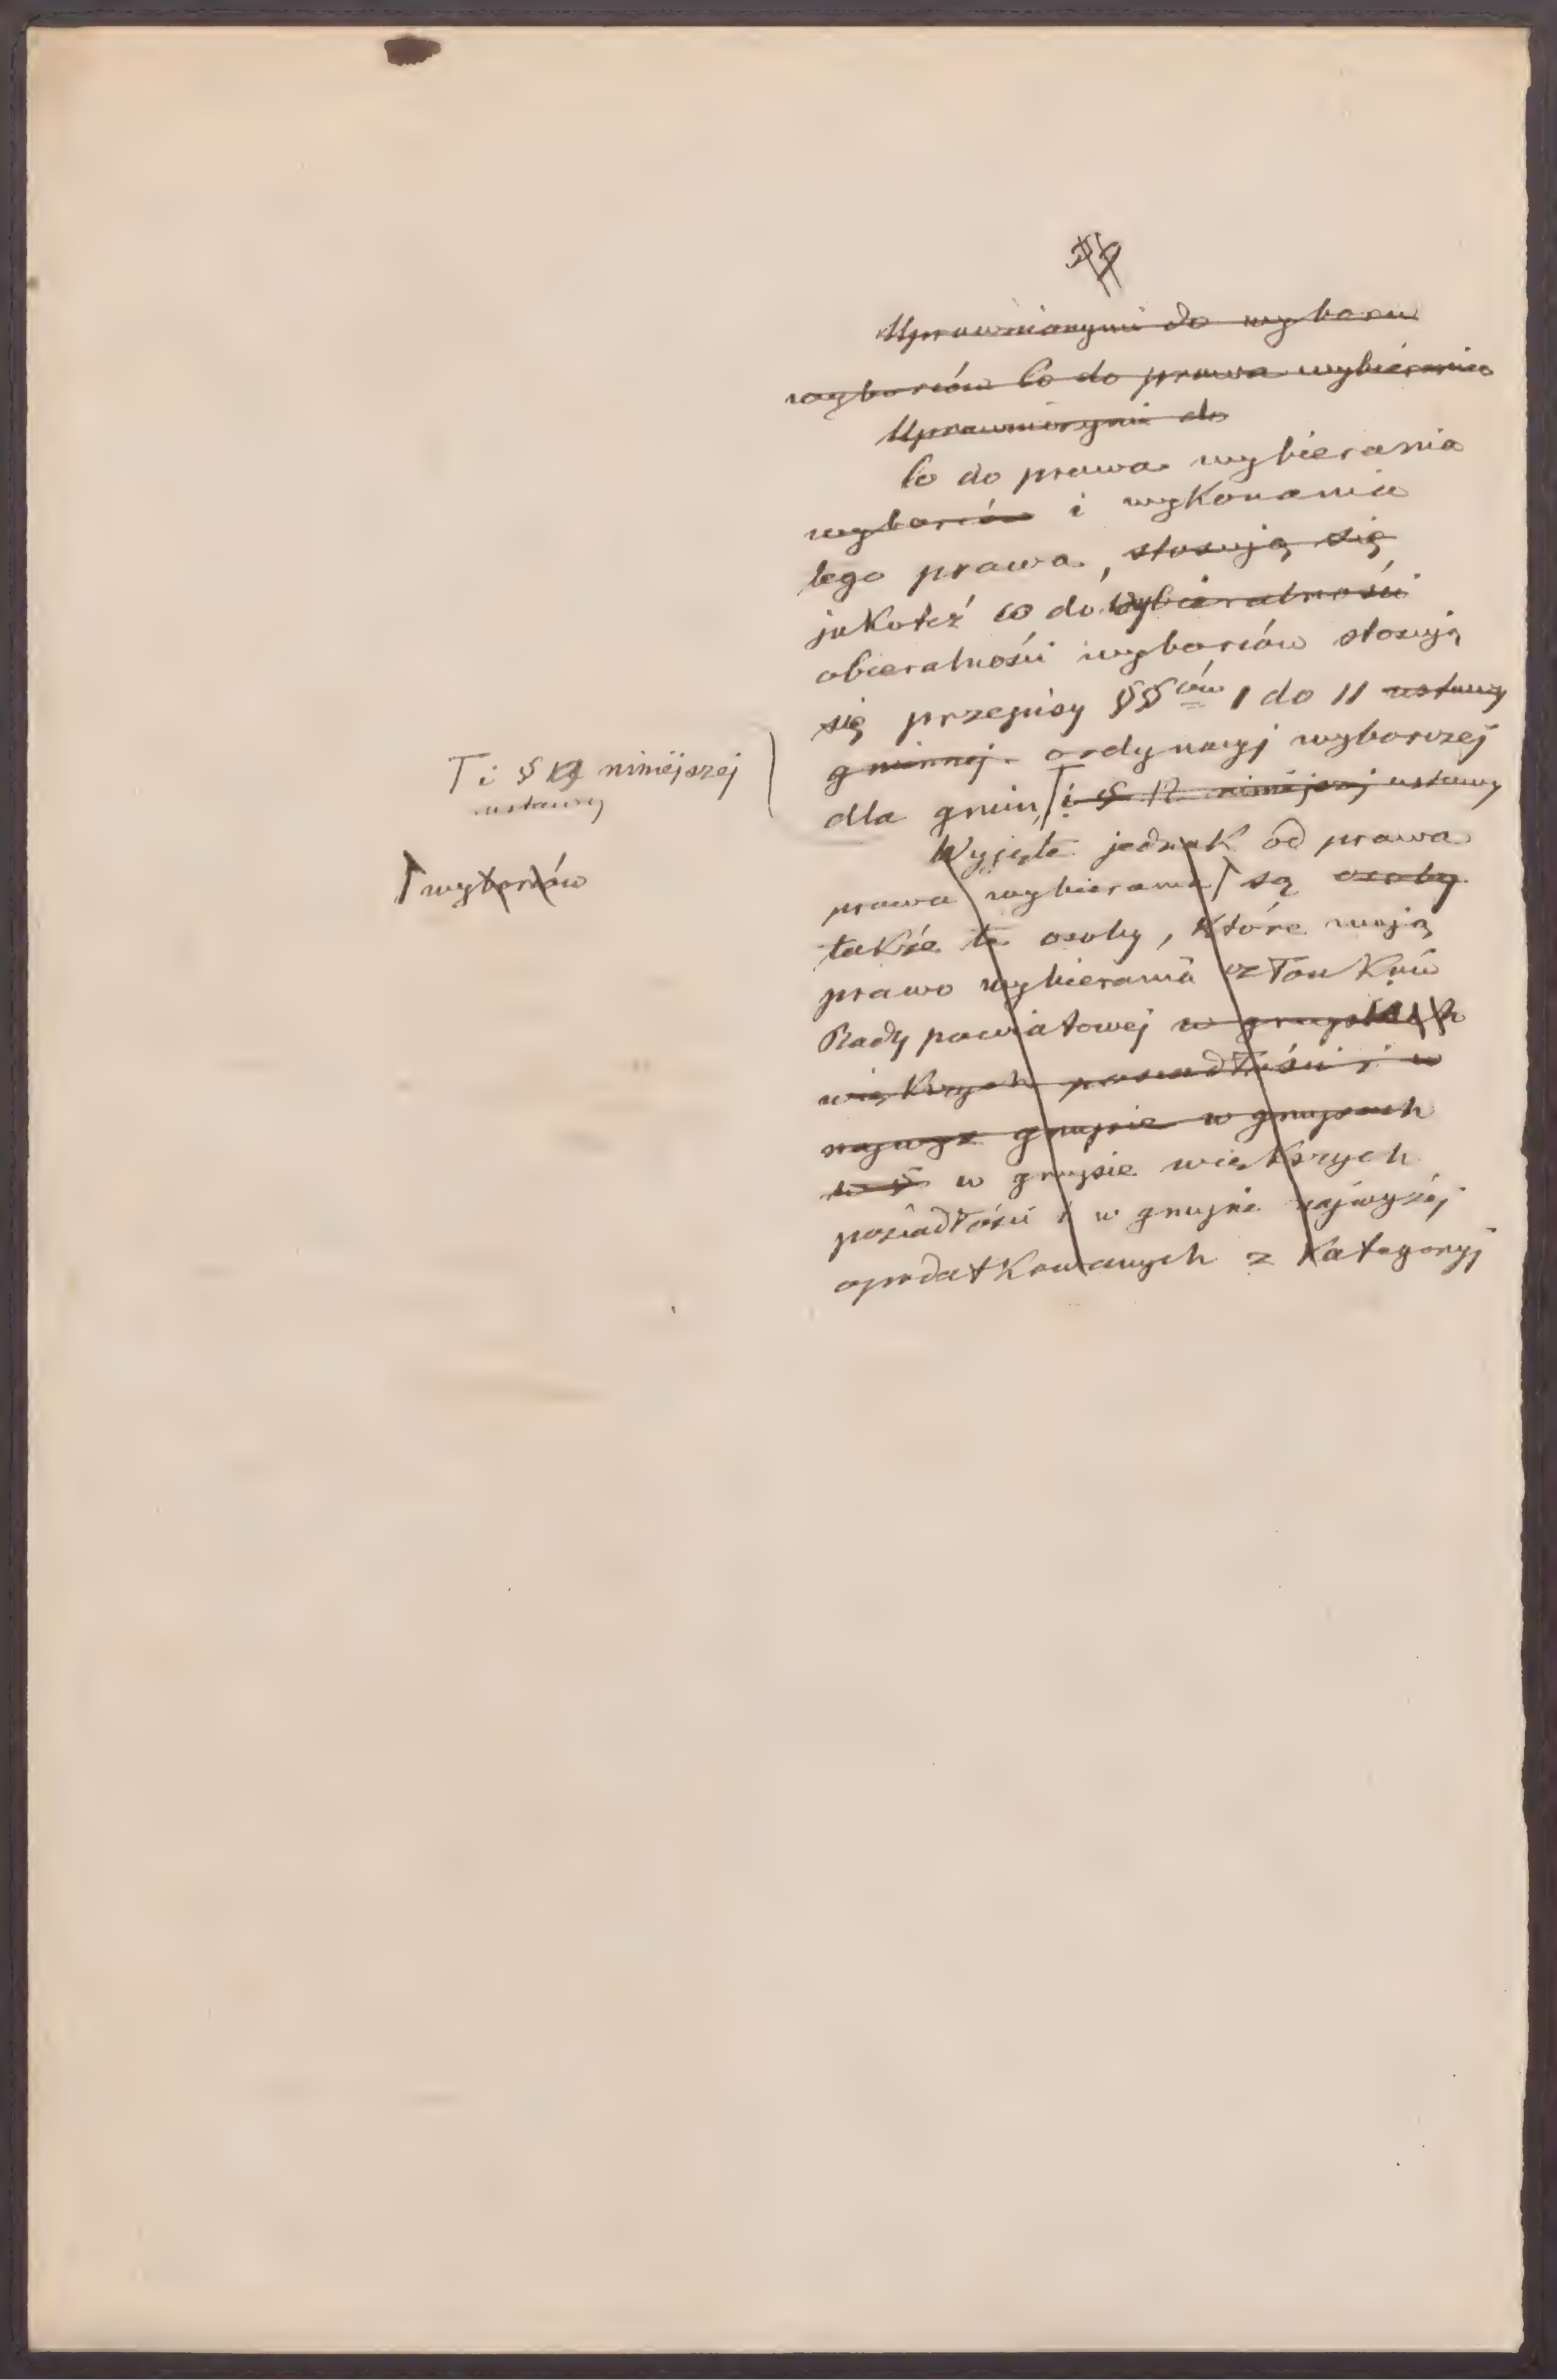 Uprawnionymi do wyboru
wyborców Co do prawa wybierania
Uprawnionymi do
Co do prawa wybierania
wyborców i wykonania
tego prawa, stosują się
jakoteż co do wybieralności
obieralności wyborców stosują
się przepisy §§ów 1 do 11 ustawy
gminnej ordynacyj wyborczej
dla gmin i § 12 niniejszej ustawy
T i § niniejszej
ustawy
Wyjęte jednak od prawa
prawa wybierania są osoby
wyborców
także te osoby, które mają
prawo wybierania członków
Rady powiatowej w grupach
większych posiadłości i w
najwyż grupie w grupach
w § w grupie większych
posiadłości i w grupie najwyżej
opodatkowanych z kategoryj